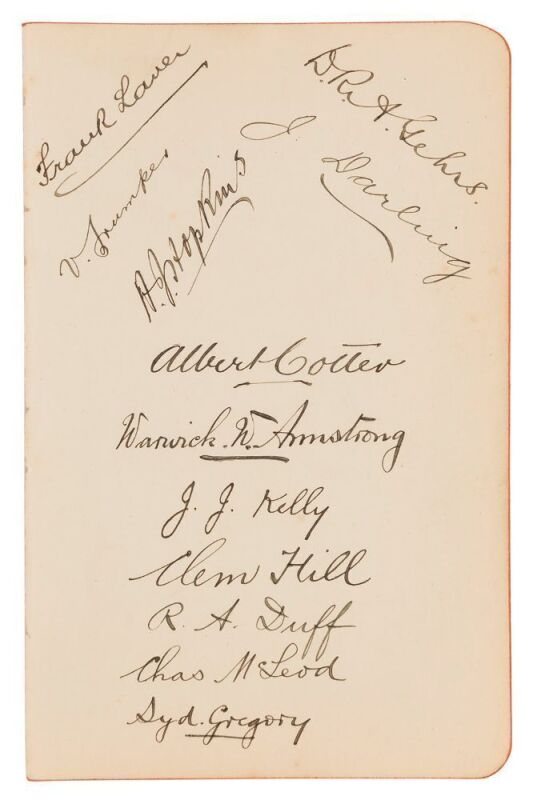 Frank Laver
D. R. A. Gehrs.
J. Darling
V. Trumper
A. J. Hopkins
Albert Cotter
Warwick. W. Armstrong
J. J. Kelly
Clem Hill
R. A. Duff
Chas McLeod
Syd. Gregory